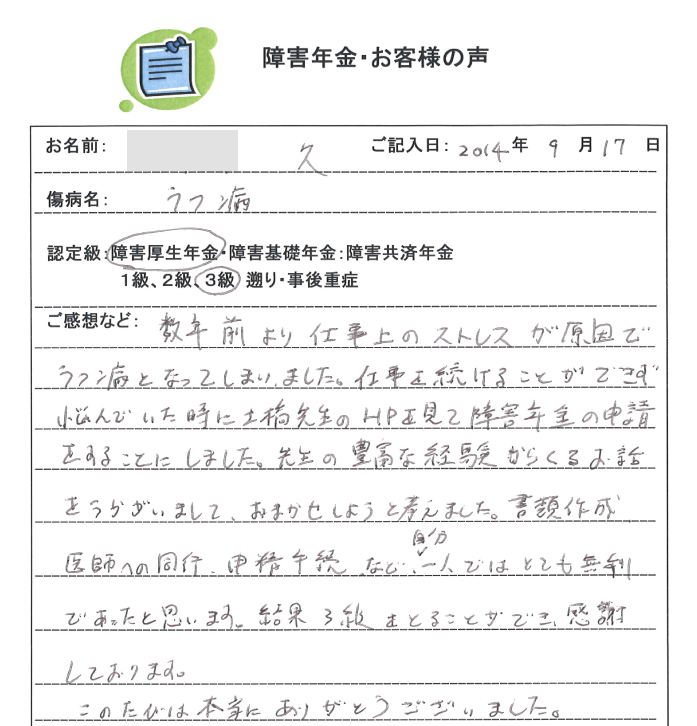 障害年金・お客様の声
お名前: 久 ご記入日: 2014年 9月17日
傷病名: うつ病
認定級:障害厚生年金・障害基礎年金:障害共済年金
1級、2級、3級 遡り・事後重症
ご感想など: 数年前より仕事上のストレスが原因で
うつ病となってしまいました。仕事を続けることができず
悩んでいた時に土橋先生のHPを見て障害年金の申請
をすることにしました。先生の豊富な経験からくるお話
をうかがいまして、おまかせしようと考えました。書類作成
自分
医師への同行、申精手続など、一人ではとても無利
であったと思います。結果3級をとることができ、感謝
しております。
このたびは本当にありがとうございました。